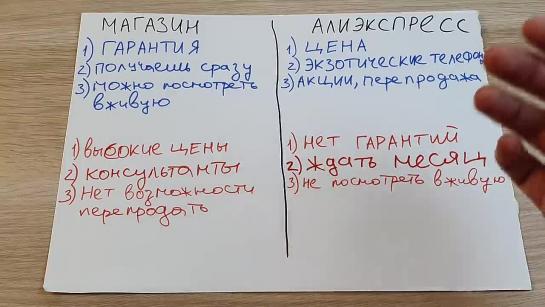 МАГАЗИН
1) ГАРАНТИЯ
2) ПОЛУЧАЕШЬ СРАЗУ
3) МОЖНО ПОСМОТРЕТЬ
ВЖИВУЮ
1) ВЫСОКИЕ ЦЕНЫ
2) КОНСУЛЬТАНТЫ
3) НЕТ ВОЗМОЖНОСТИ
ПЕРЕПРОДАТЬ
АЛИЭКСПРЕСС
1) ЦЕНА
2) ЭКЗОТИЧЕСКИЕ ТЕЛЕФОНЫ
3) АКЦИИ, ПЕРЕПРОДАЖА
1) НЕТ ГАРАНТИЙ
2) ЖДАТЬ МЕСЯЦ
3) НЕ ПОСМОТРЕТЬ ВЖИВУЮ